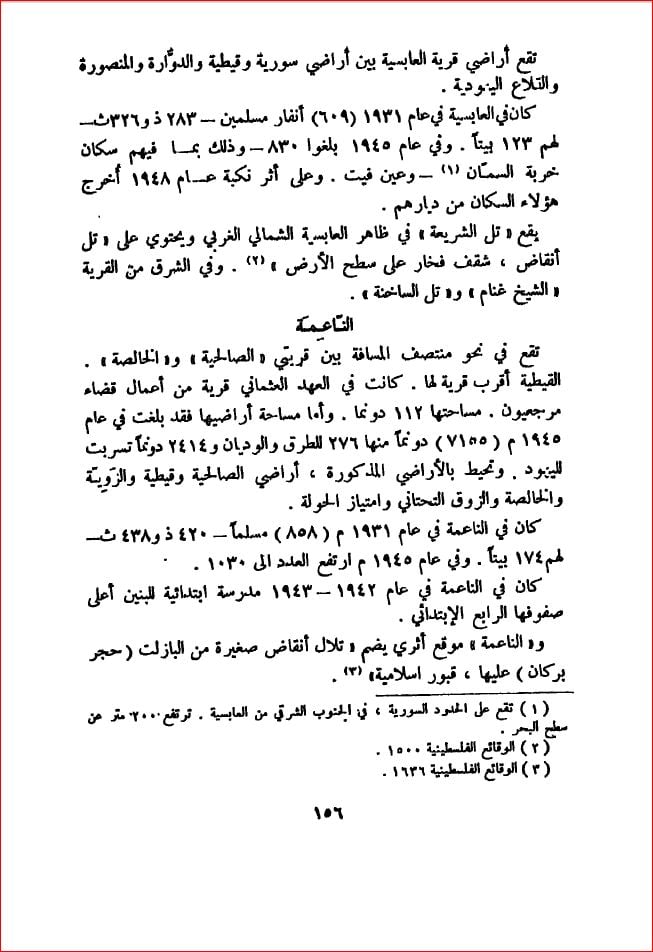 تقع أراضي قرية العابسية بين أراضي سورية وقيطية والدوّارة والمنصورة
والتلاع اليهودية .
كان في العابسية في عام ١٩٣١ (٦٠٩) أنفار مسلمين – ٢٨٣ ذ و٣٢٦ث–
لهم ١٢٣ بيتاً . وفي عام ١٩٤٥ بلغوا ٨٣٠ – وذلك بما فيهم سكان
خربة السمّان (١) – وعين فيت . وعلى أثر نكبة عام ١٩٤٨ أُخرج
هؤلاء السكان من ديارهم .
يقع « تل الشريعة » في ظاهر العابسية الشمالي الغربي ويحتوي على « تل
أنقاض ، شقف فخار على سطح الأرض » (٢) . وفي الشرق من القرية
« الشيخ غنام » و« تل الساخنة » .
النّاعِمَة
تقع في نحو منتصف المسافة بين قريتي « الصالحية » و« الخالصة » .
القيطية أقرب قرية لها . كانت في العهد العثماني قرية من أعمال قضاء
مرجعيون . مساحتها ١١٢ دونما . وأما مساحة أراضيها فقد بلغت في عام
١٩٤٥ م ( ٧١٥٥ ) دونماً منها ٢٧٦ للطرق والوديان و ٢٤١٤ دونماً تسربت
لليهود . وتحيط بالأراضي المذكورة ، أراضي الصالحية وقيطية والزّوِيّة
والخالصة والزوق التحتاني وامتياز الحولة .
كان في الناعمة في عام ١٩٣١ م ( ٨٥٨ ) مسلماً – ٤٢٠ ذ و٤٣٨ ث–
لهم ١٧٤ بيتاً . وفي عام ١٩٤٥ م ارتفع العدد الى ١٠٣٠ .
كان في الناعمة في عام ١٩٤٢ – ١٩٤٣ مدرسة ابتدائية للبنين أعلى
صفوفها الرابع الإبتدائي .
و« الناعمة » موقع أثري يضم « تلال أنقاض صغيرة من البازلت ( حجر
بركان ) عليها ، قبور اسلامية» (٣) .
( ١ ) تقع على الحدود السورية ، في الجنوب الشرقي من العابسية . ترتفع ٢٠٠ متر عن
سطح البحر .
( ٢ ) الوقائع الفلسطينية ١٥٠٠ .
( ٣ ) الوقائع الفلسطينية ١٦٣٦ .
١٥٦